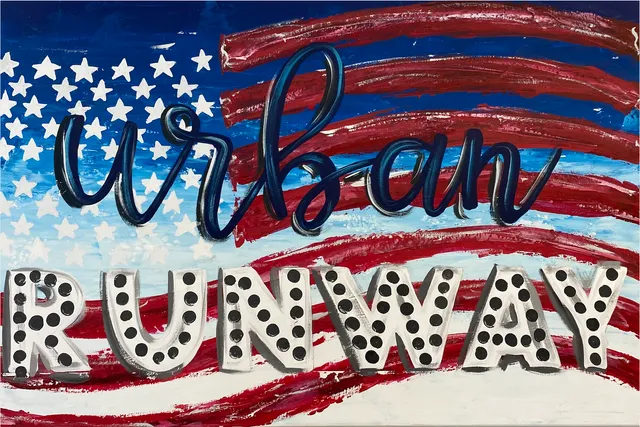 urban
RUNWAY